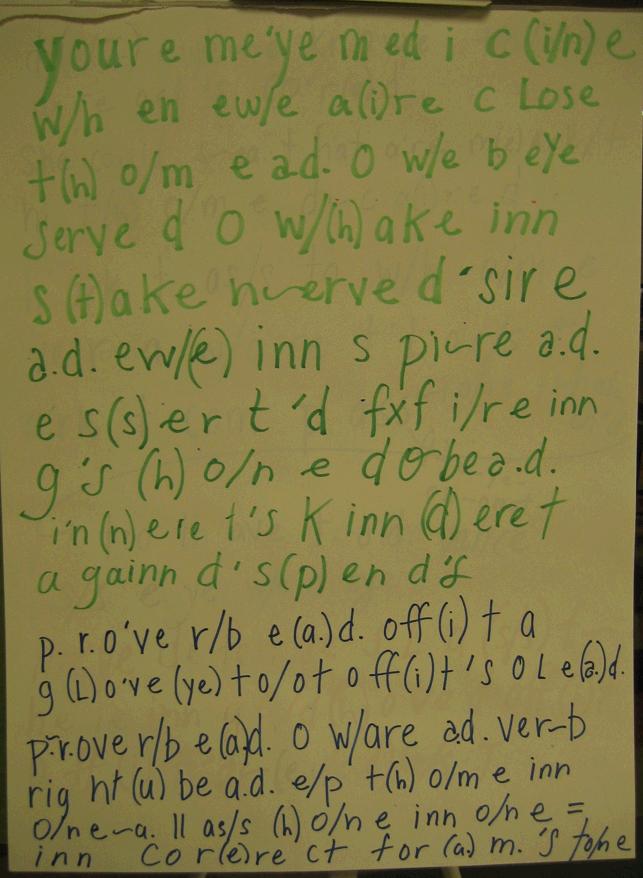 youre me'ye med i c (i/n) e
w/h en ew/e a(i)re c Lose
t(h) o/m e ad. O w/e b eye
serve d O w/(h) ake inn
s (t)ake nerve d 'sir e
a.d. ew/(e) inn s pire a.d.
e s(s) er t 'd fxf i/re inn
g 's (h) o/n e d O be a.d.
i'n(n) ere t's K inn (d) ere t
a gainn d's(p) en d's
p. r.o've r/b e(a.)d. off(i) t a
g (L) o've (ye) to/ot o ff(i)t 's O L e(a.)d.
p.r.ove r/b e(a)d. O w/are ad. ver-b
rig ht (u) be a.d. e/p t(h) o/m e inn
o/ne-a. ll as/s (h) o/n e inn o/ne =
inn Co r(e)re ct for (a.) m. 's to/ne